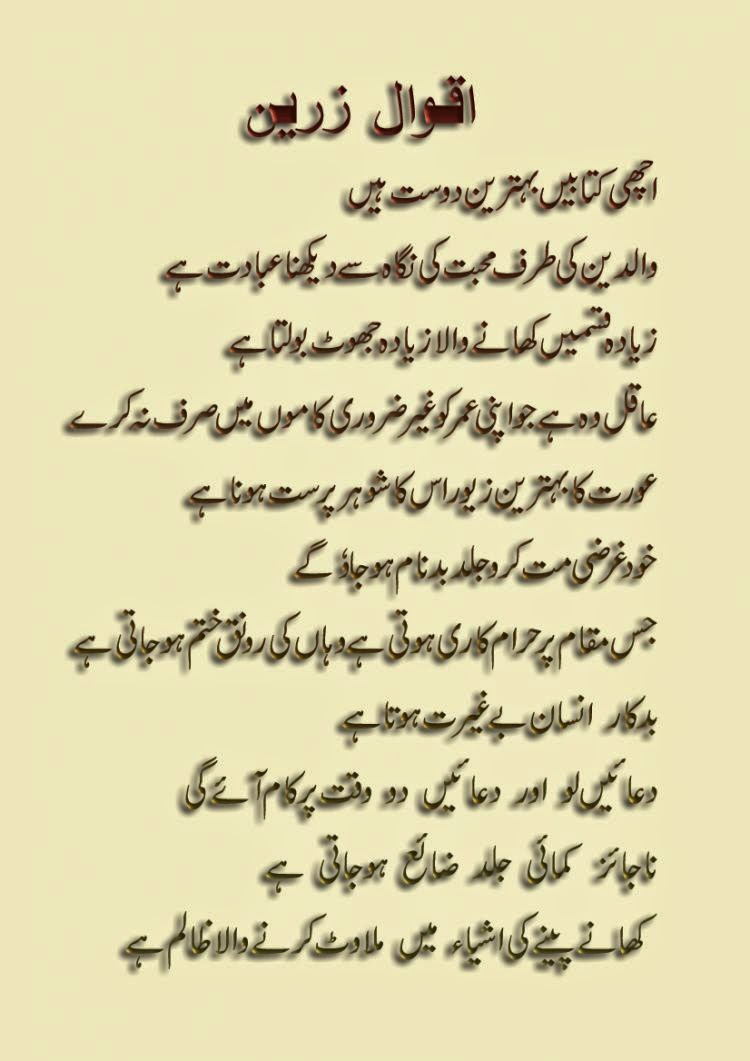 اقوال زرین
اچھی کتابیں بہترین دوست ہیں
والدین کی طرف محبت کی نگاہ سے دیکھنا عبادت ہے
زیادہ قسمیں کھانے والا زیادہ جھوٹ بولتا ہے
عاقل وہ ہے جو اپنی عمر کو غیر ضروری کاموں میں صرف نہ کرے
عورت کا بہترین زیور اس کا شوہر پرست ہونا ہے
خود غرضی مت کرو جلد بدنام ہو جاوٗ گے
جس مقام پر حرام کاری ہوتی ہے وہاں کی رونق ختم ہو جاتی ہے
بدکار انسان بے غیرت ہوتا ہے
دعائیں لو اور دعائیں دو وقت پر کام آئے گی
ناجائز کمائی جلد ضائع ہوجاتی ہے
کھانے پینے کی اشیاء میں ملاوٹ کرنے والا ظالم ہے